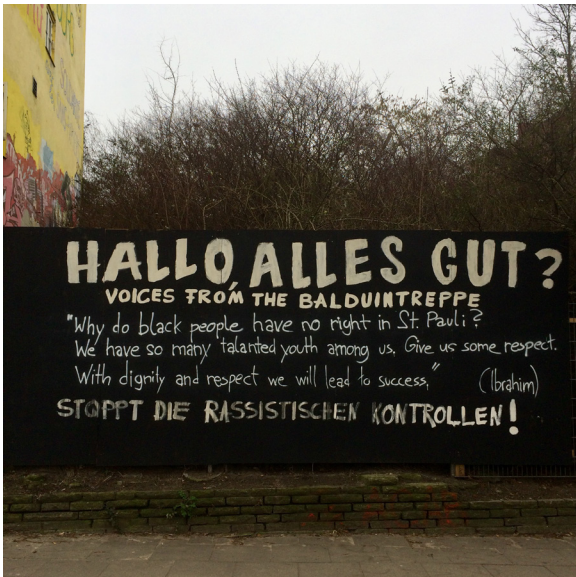 HALLO, ALLES GUT?
VOICES FROM THE BALDUINTREPPE
"Why do black people have no right in St. Pauli?
We have so many talanted youth among us. Give us some respect.
With dignity and respect we will lead to success." (Ibrahim)
STOPPT DIE RASSISTISCHEN KONTROLLEN!